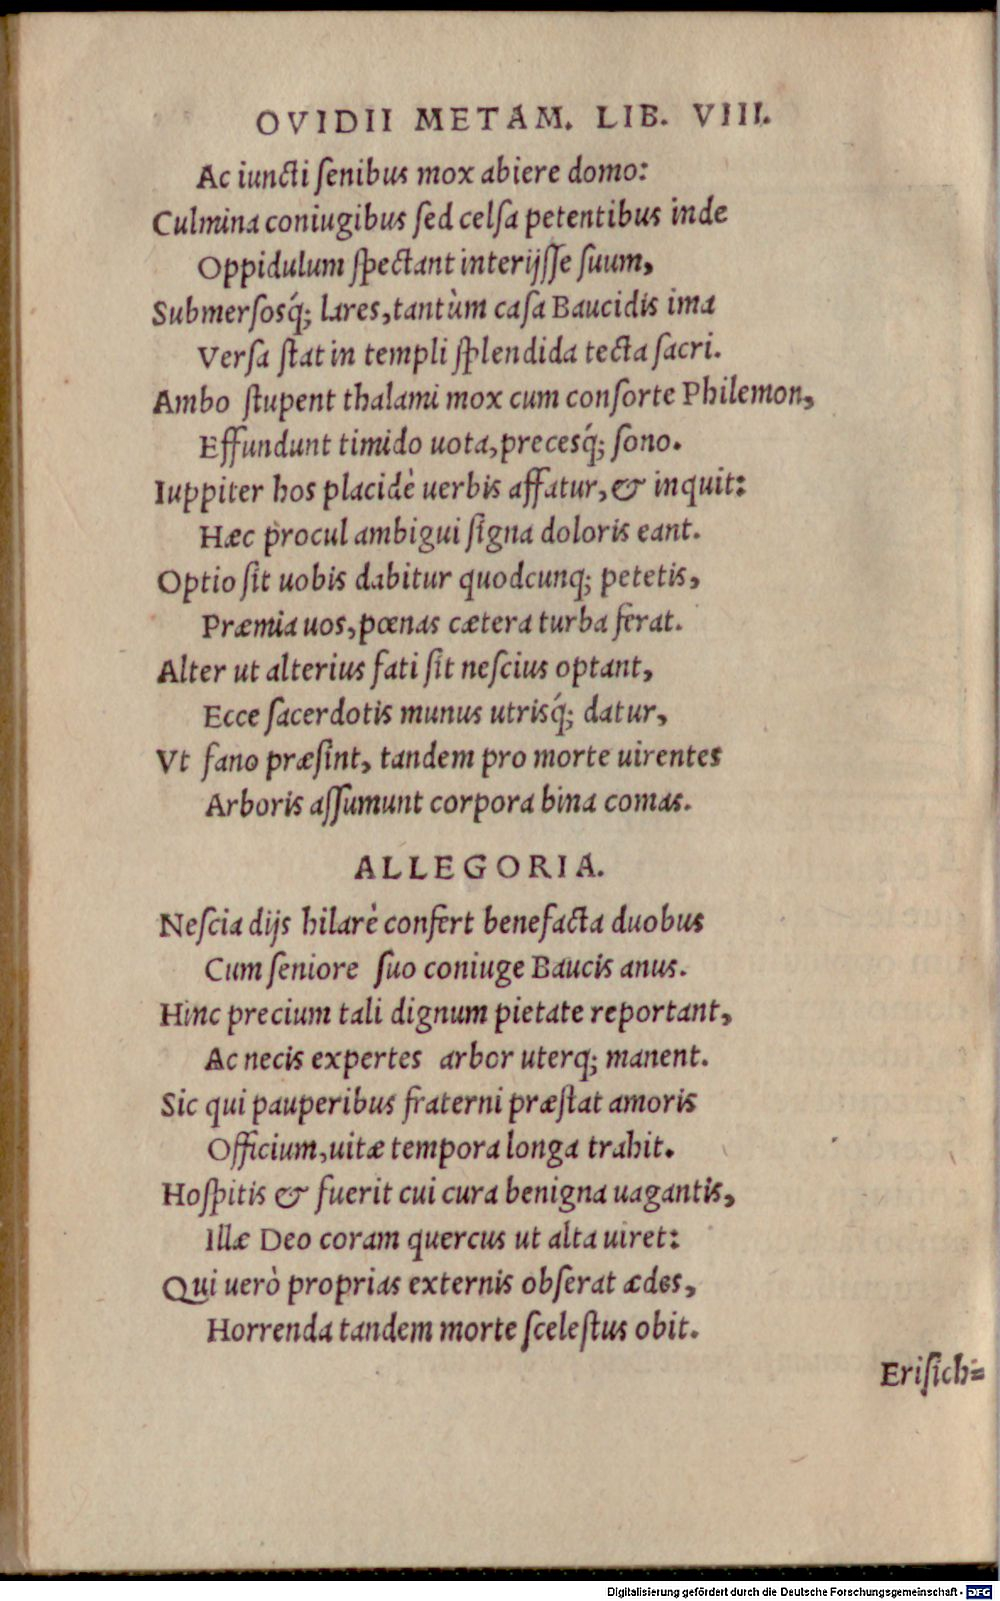 OVIDII METAM. LIB. VIII.
Ac iuncti ſenibus mox abiere domo:
Culmina coniugibus ſed celſa petentibus inde
Oppidulum ſpectant interijſſe ſuum,
Submerſosq́; lares, tantùm caſa Baucidis ima
Verſa ſtat in templi ſplendida tecta ſacri.
Ambo ſtupent thalami mox cum conſorte Philemon,
Effundunt timido uota, precesq́; ſono.
Iuppiter hos placidè uerbis affatur, & inquit:
Hæc procul ambigui ſigna doloris eant.
Optio ſit uobis dabitur quodcunq; petetis,
Præmia uos, pœnas cætera turba ferat.
Alter ut alterius fati ſit neſcius optant,
Ecce ſacerdotis munus utrisq́; datur,
Vt fano præſint, tandem pro morte uirentes
Arboris aſſumunt corpora bina comas.
ALLEGORIA.
Neſcia dijs hilarè confert benefacta duobus
Cum ſeniore ſuo coniuge Baucis anus.
Hinc precium tali dignum pietate reportant,
Ac necis expertes arbor uterq; manent.
Sic qui pauperibus fraterni præſtat amoris
Officium, uitæ tempora longa trahit.
Hoſpitis & fuerit cui cura benigna uagantis,
Illæ Deo coram quercus ut alta uiret:
Qui uerò proprias externis obſerat ædes,
Horrenda tandem morte ſceleſtus obit.
Eriſich=
Digitalisierung gefördert durch die Deutsche Forschungsgemeinschaft - DFG